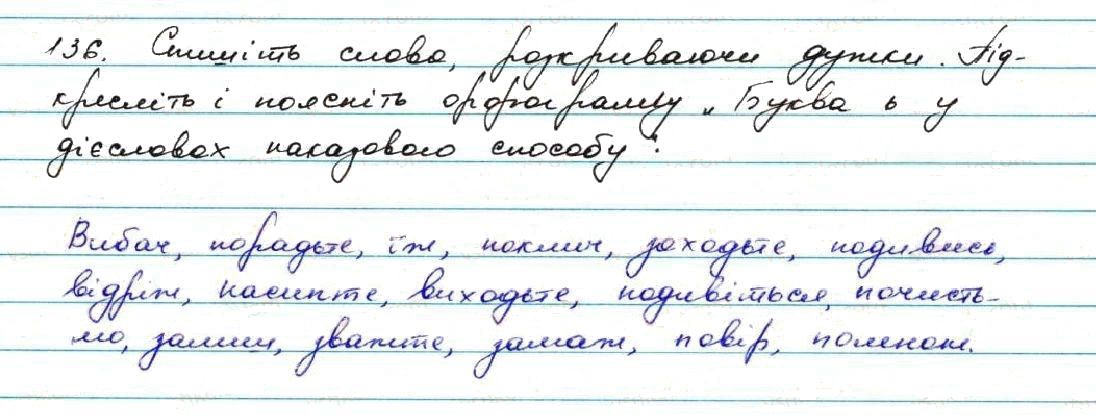 136. Спишіть слова, розкриваючи дужки. Під-
кресліть і поясніть орфограму „Буква ь у
дієсловах наказового способу".
Вибач, порадьте, їж, поклич, заходьте, подивись,
відріж, насипте, виходьте, подивіться, почисть-
мо, залиш, зважте, замаж, повір, помнож.